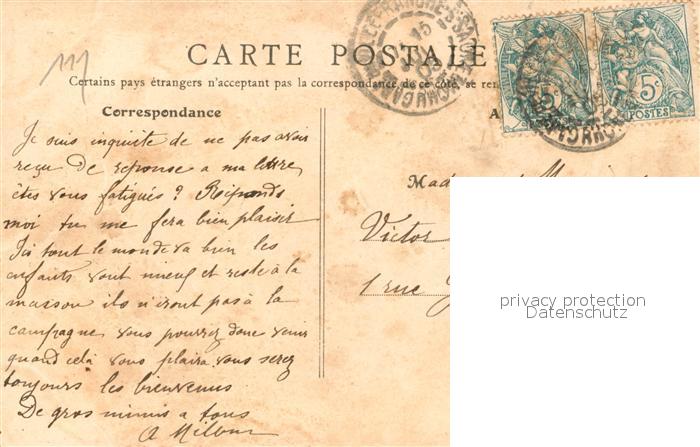 111
CARTE POSTALE
Certains pays étrangers n'acceptant pas la correspondance de ce côté, se ren
Correspondance
A
5c
5c
POSTES
Je suis inquiite de ne pas avoir
reçu de reponse a ma lettre
êtes vous fatigués ? Reponds
moi tu me fera bien plaisir
Ici tout le monde va bien les
enfants vont mieux et reste à la
maison ils n'iront pas à la
campagne vous pourrez donc venir
quand celà vous plaira vous serez
toujours les bienvenus
De gros mimis a tous
Mad
Victor
1 rue
privacy protection
Datenschutz